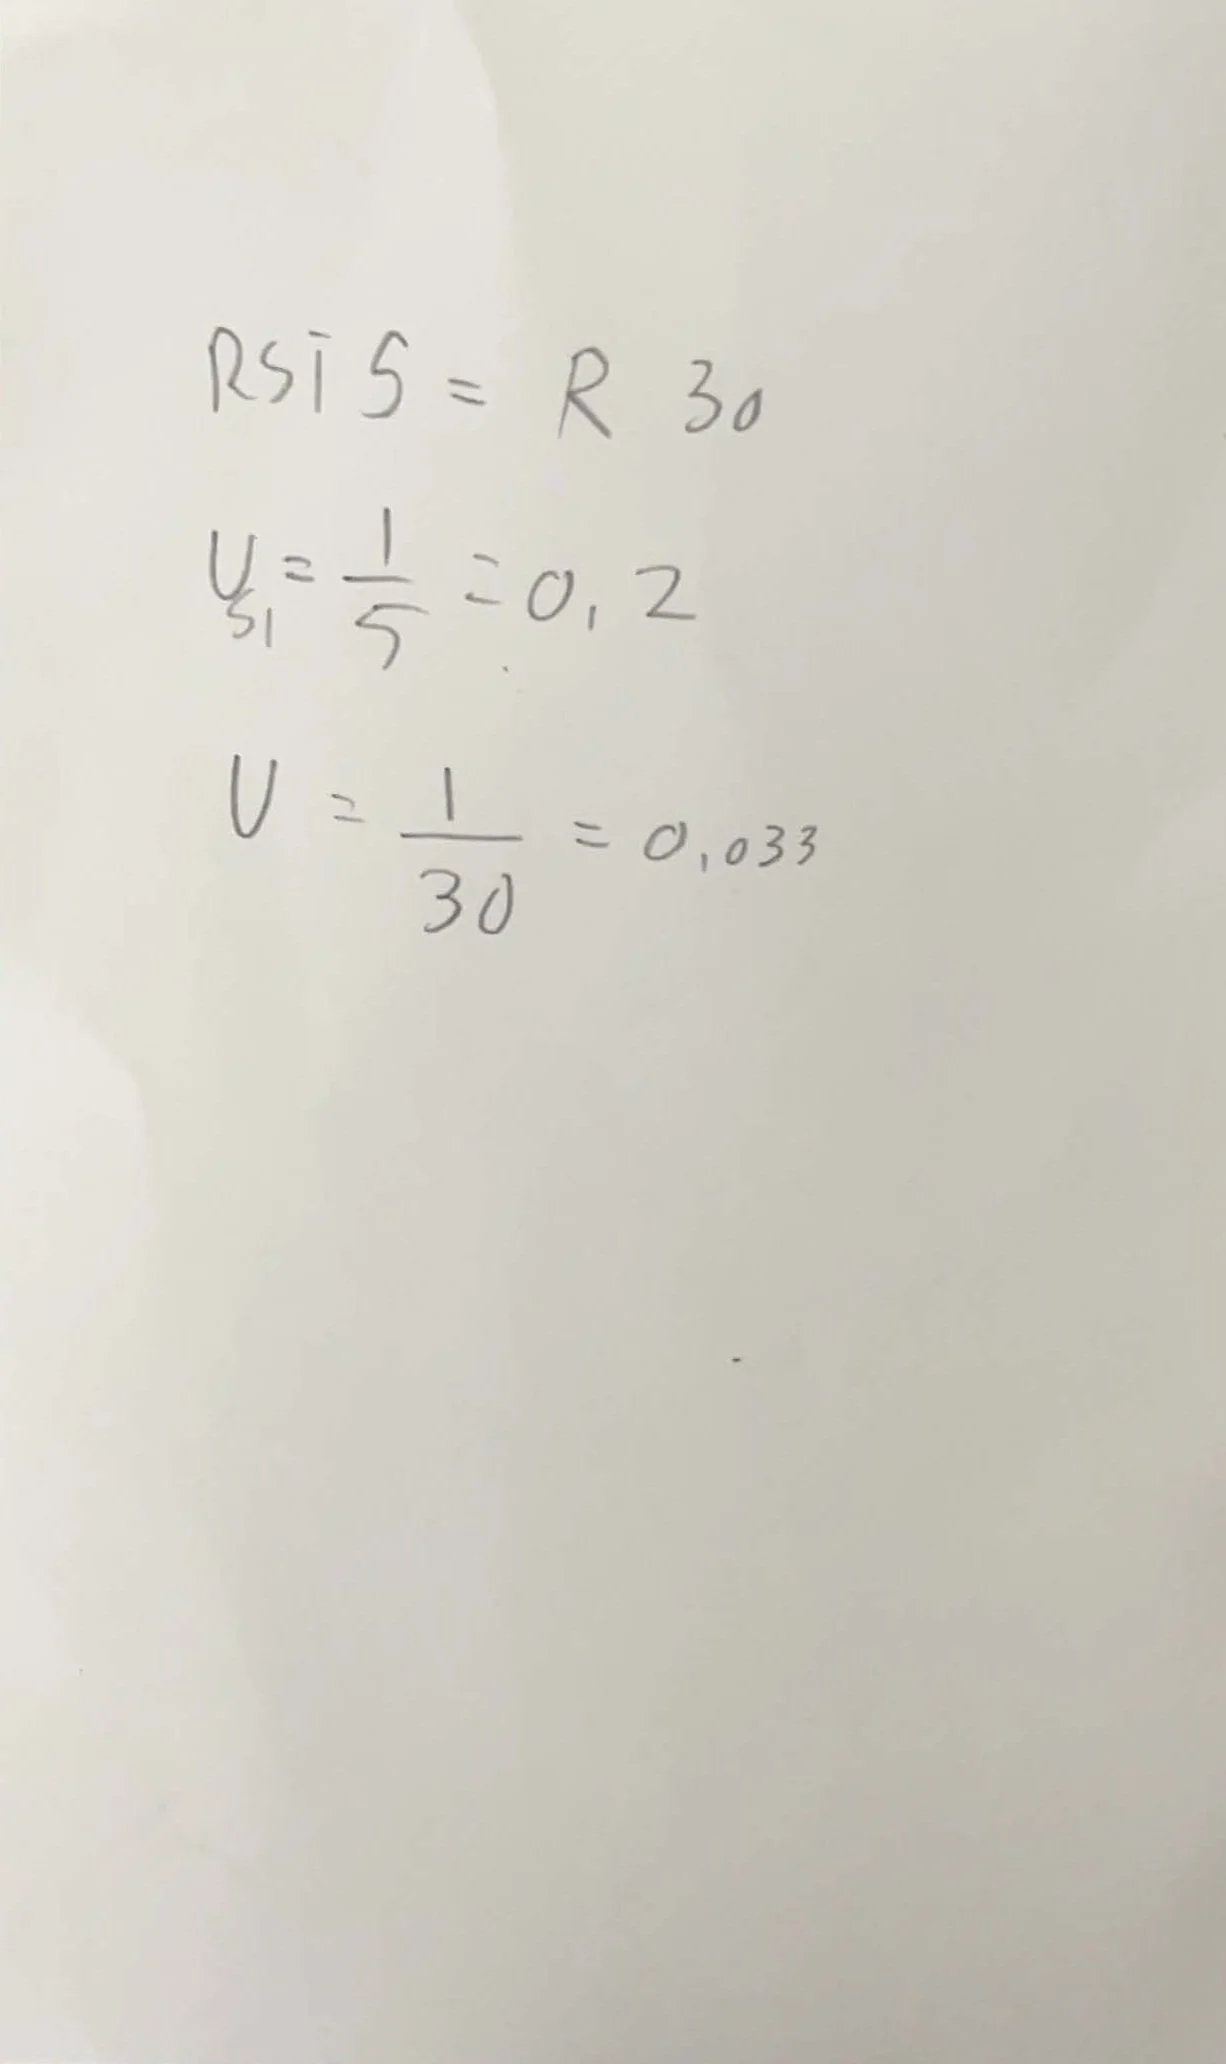 RSI 5 = R 30
U_SI = 1/5 = 0,2
U = 1/30 = 0,033